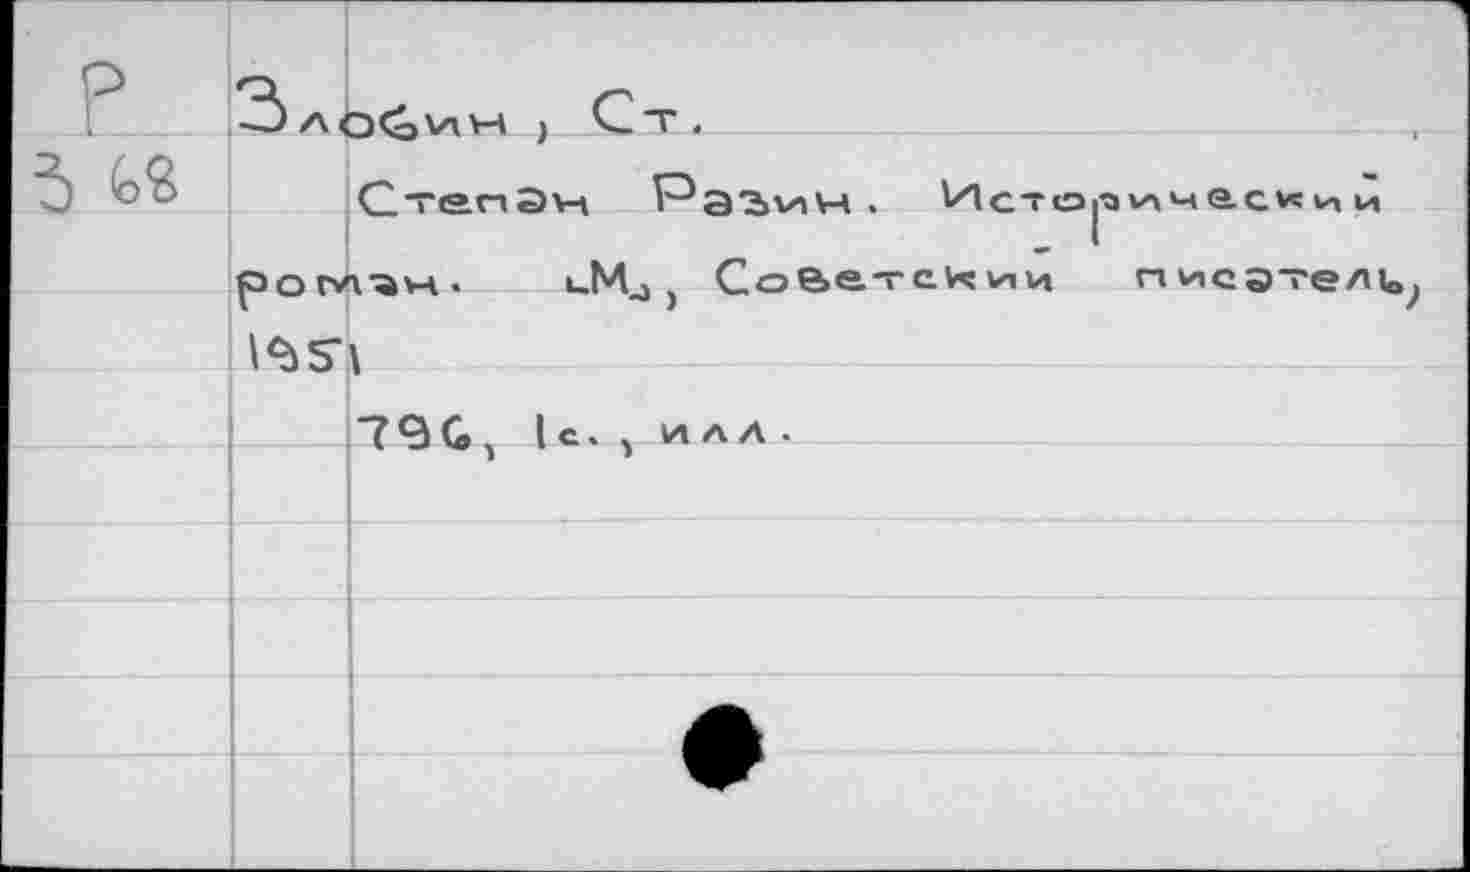 Р
Злобин, Ст.
З 68
Степан Разин. Исторический
роман. [М.], Советский писатель,
1951
796, 1 с., илл.